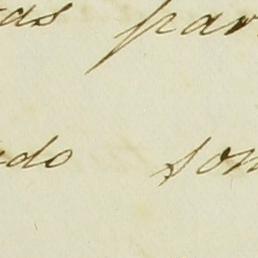 as par
do son